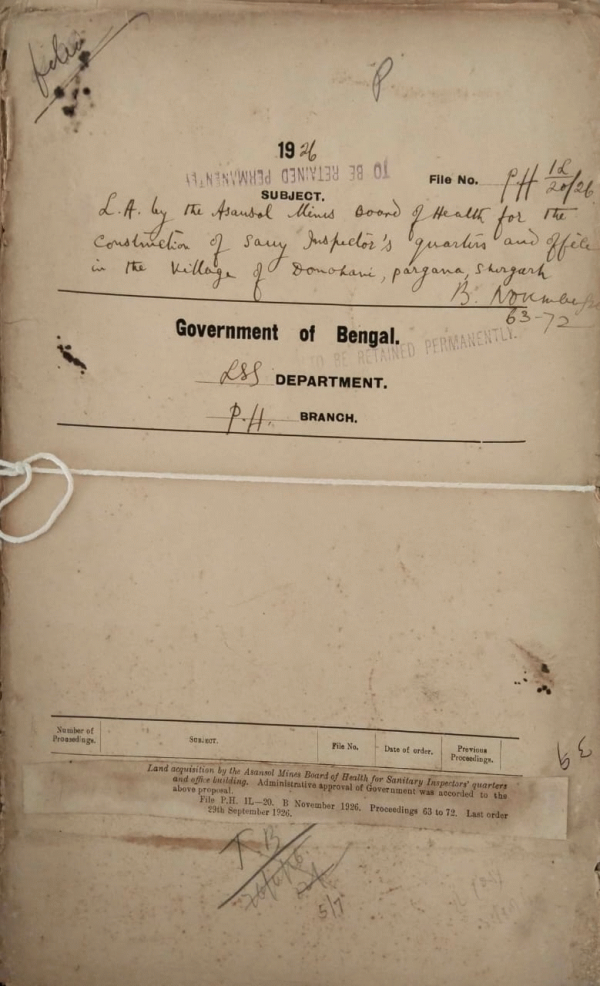 P.
1926
TO BE RETAINED PERMANENTLY
File No. PH 1L/20/26
SUBJECT.
L.A. by the Asansol Mines Board of Health for the
Construction of Sany Inspector's quarters and office
in the Village of Domohani, pargana, Shergarh
B. November
63-72
Government of Bengal.
TO BE RETAINED PERMANENTLY.
LSG DEPARTMENT.
P.H. BRANCH.
Number of Proceedings.
SUBJECT.
File No.
Date of order.
Previous Proceedings.
Land acquisition by the Asansol Mines Board of Health for Sanitary Inspectors' quarters
and office building. Administrative approval of Government was accorded to the
above proposal.
File P.H. 1L—20. B November 1926. Proceedings 63 to 72. Last order
29th September 1926.
T.B
5/7